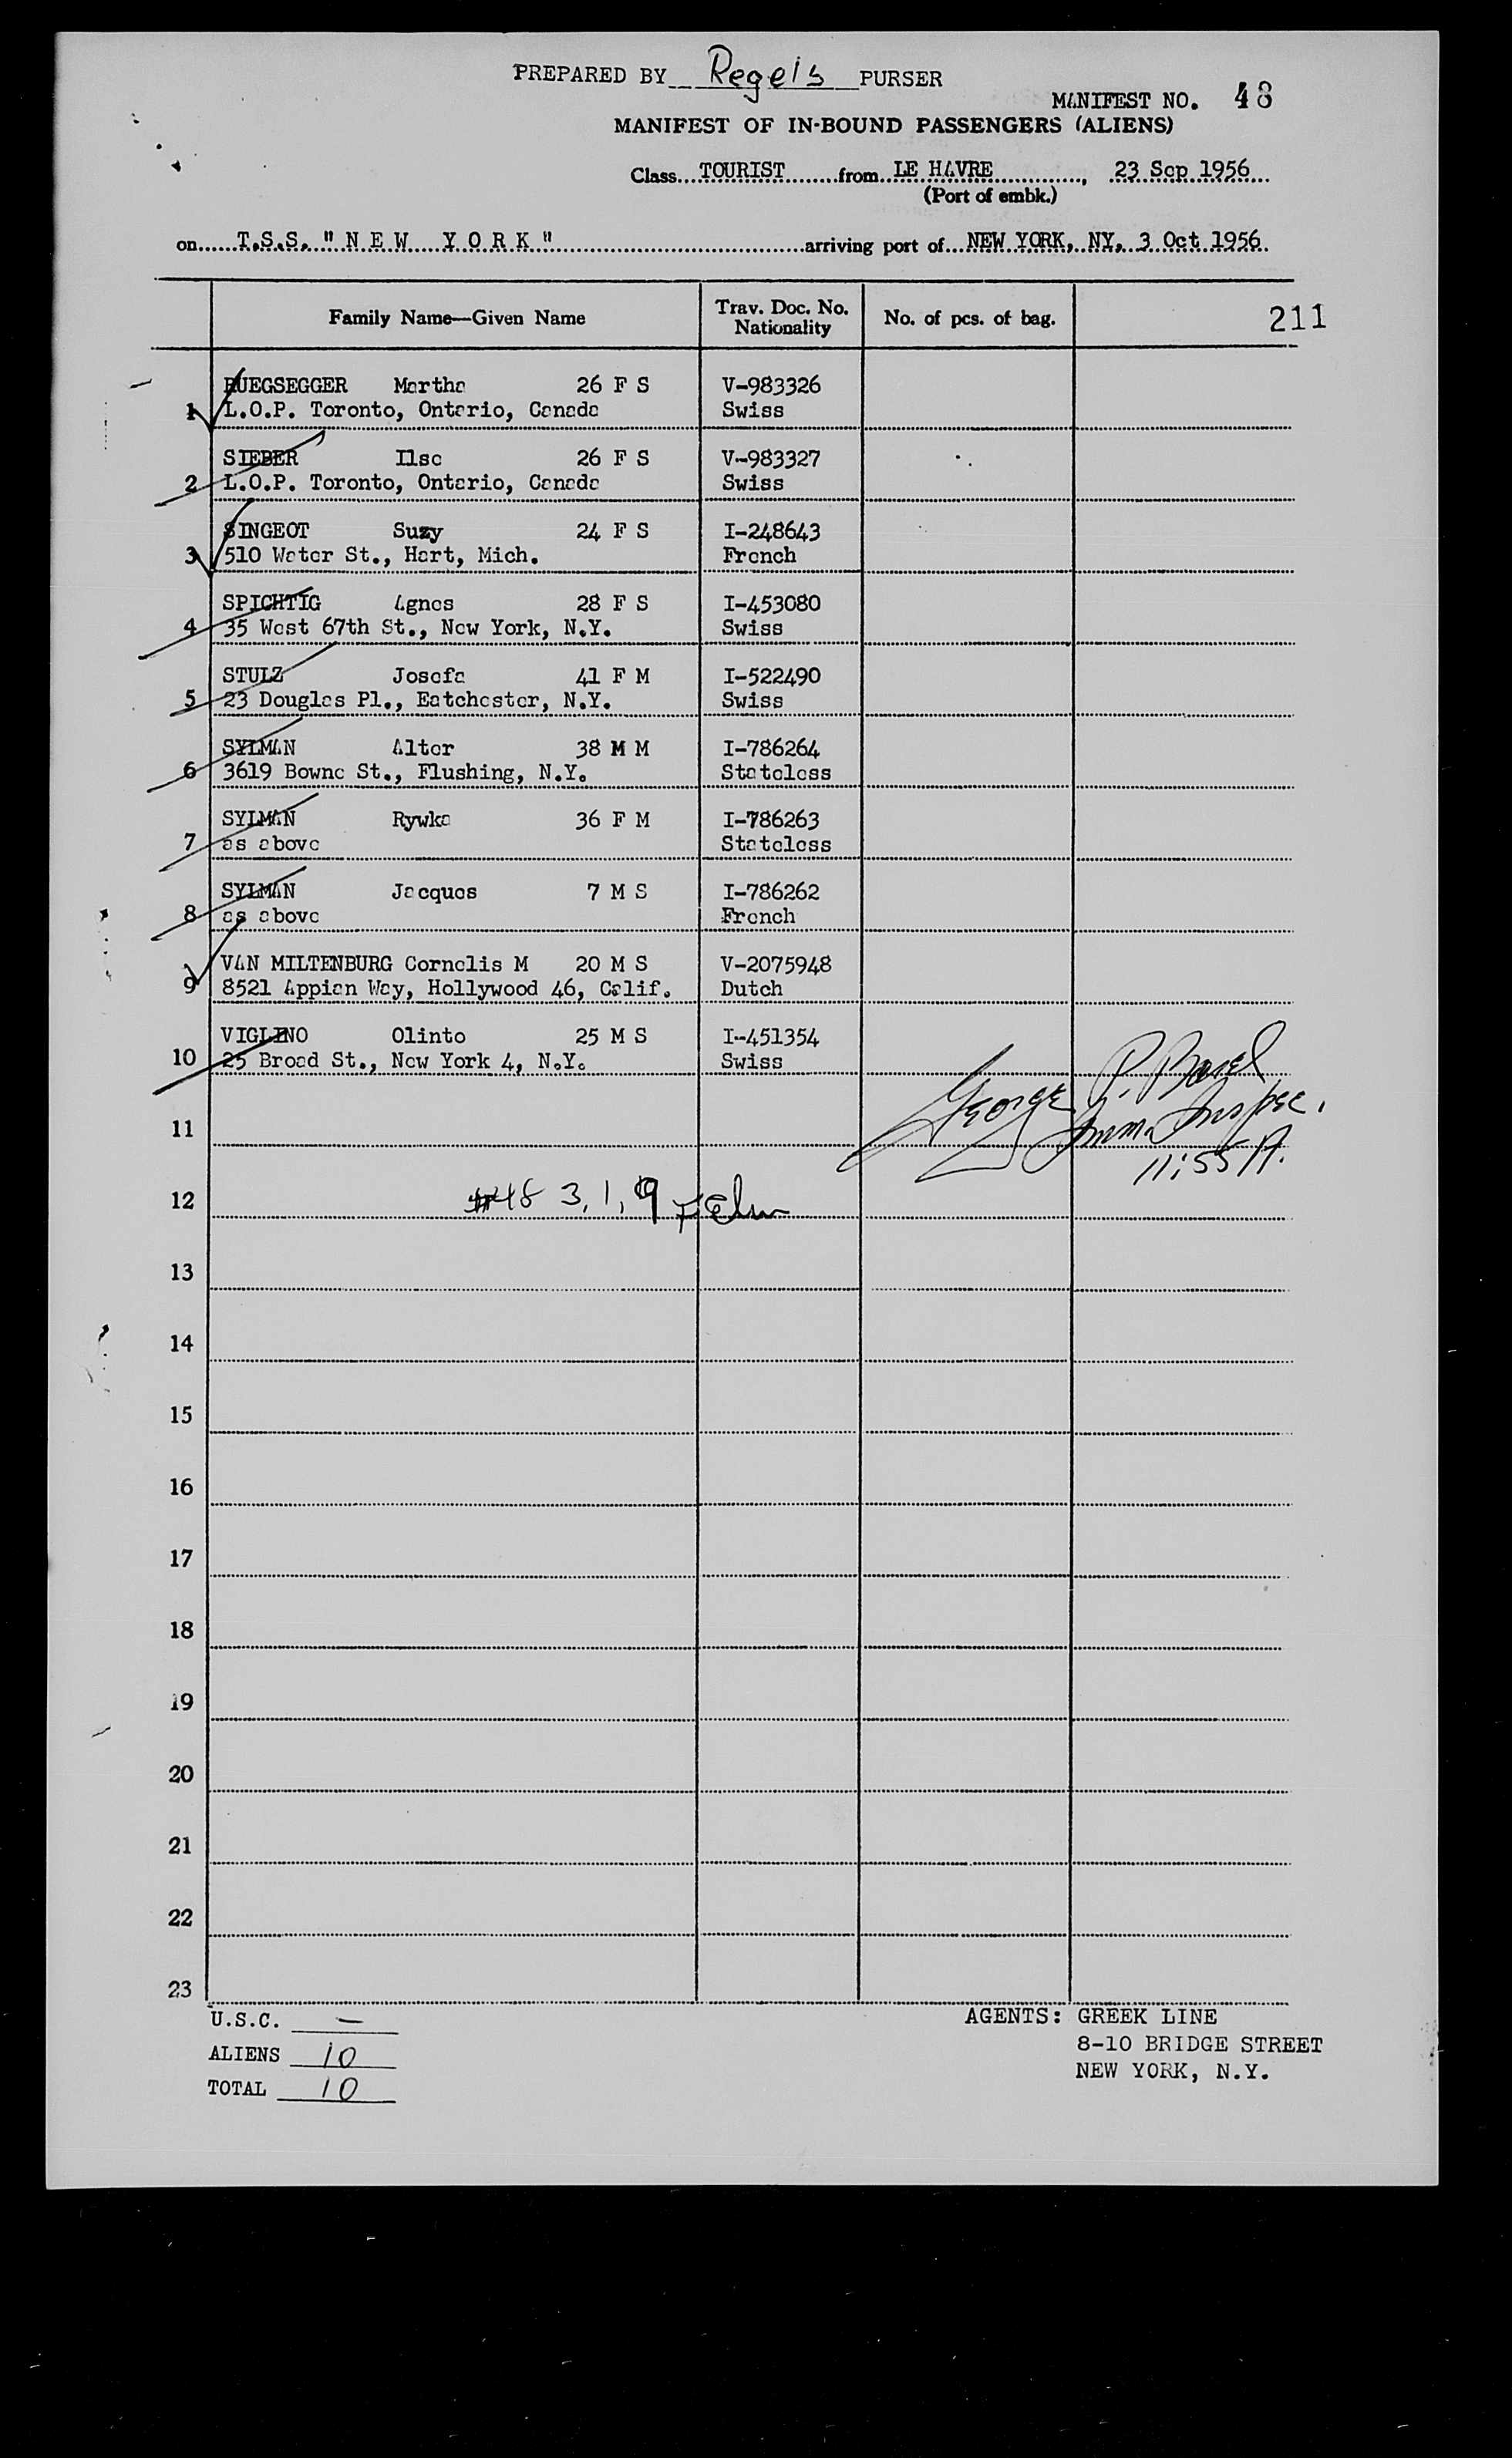 PREPARED BY Regels PURSER
MANIFEST NO. 48
MANIFEST OF IN-BOUND PASSENGERS (ALIENS)
Class...TOURIST........from...LE HAVRE............., 23 Sep 1956...
(Port of embk.)
on......T.S.S. "N E W  Y O R K"..........arriving port of...NEW YORK, NY, 3 Oct 1956.
Family Name—Given Name Trav. Doc. No. Nationality No. of pcs. of bag. 211
1 RUEGSEGGER Martha 26 F S V-983326
L.O.P. Toronto, Ontario, Canada Swiss
2 SIEBER Ilse 26 F S V-983327
L.O.P. Toronto, Ontario, Canada Swiss
3 SINGEOT Suzy 24 F S I-248643
510 Water St., Hart, Mich. French
4 SPICHTIG Agnes 28 F S I-453080
35 West 67th St., New York, N.Y. Swiss
5 STULZ Josefa 41 F M I-522490
23 Douglas Pl., Eatchester, N.Y. Swiss
6 SYLMAN Alter 38 M M I-786264
3619 Bowne St., Flushing, N.Y. Stateless
7 SYLMAN Rywka 36 F M I-786263
as above Stateless
8 SYLMAN Jacques 7 M S I-786262
as above French
9 VAN MILTENBURG Cornelis M 20 M S V-2075948
8521 Appian Way, Hollywood 46, Calif. Dutch
10 VIGLINO Olinto 25 M S I-451354
25 Broad St., New York 4, N.Y. Swiss
George P.
Imm. Inspec.
11:55 A.
11
12 #48 3, 1, 9
13
14
15
16
17
18
19
20
21
22
23
U.S.C. —
ALIENS 10
TOTAL 10
AGENTS: GREEK LINE
8-10 BRIDGE STREET
NEW YORK, N.Y.